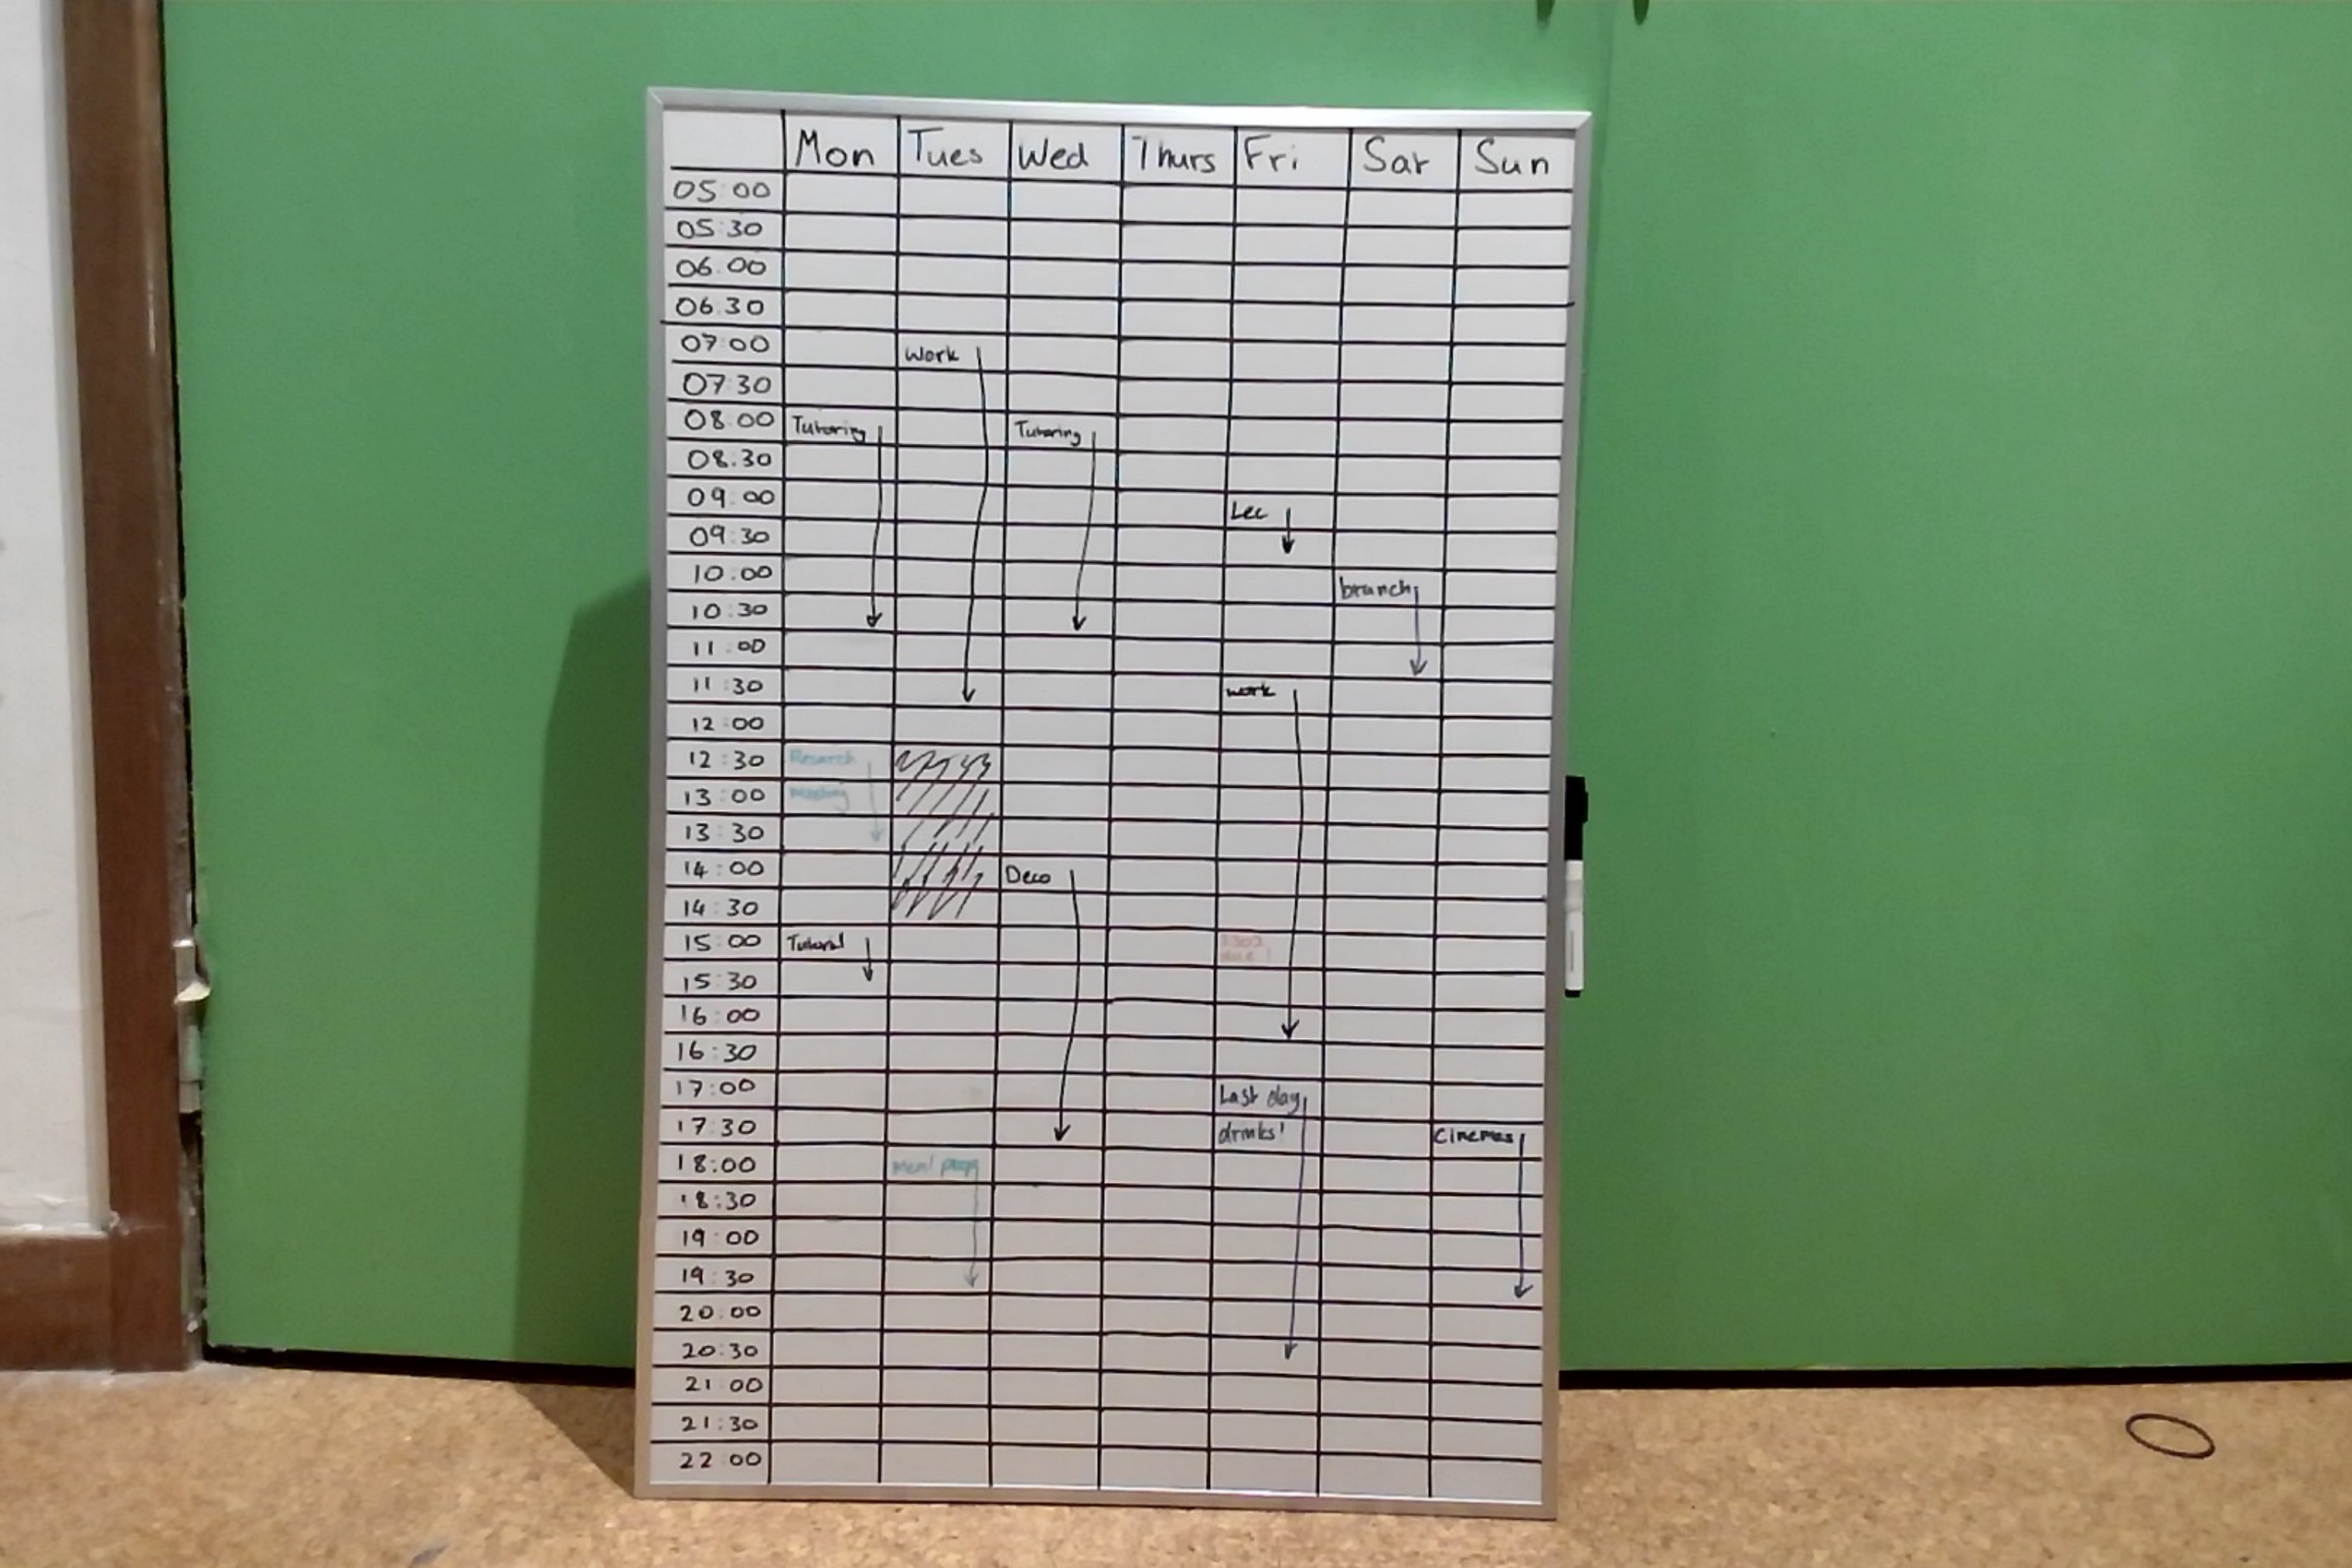 Mon Tues Wed Thurs Fri Sat Sun
05:00
05:30
06:00
06:30
07:00 Work
07:30
08:00 Tutoring Tutoring
08:30
09:00 Lec
09:30
10:00 brunch
10:30
11:00
11:30 work
12:00
12:30 Research
13:00 meeting
13:30
14:00 Deco
14:30
15:00 Tutorial
due!
15:30
16:00
16:30
17:00 Last day
17:30 drinks! Cinemas
18:00 Meal prep
18:30
19:00
19:30
20:00
20:30
21:00
21:30
22:00